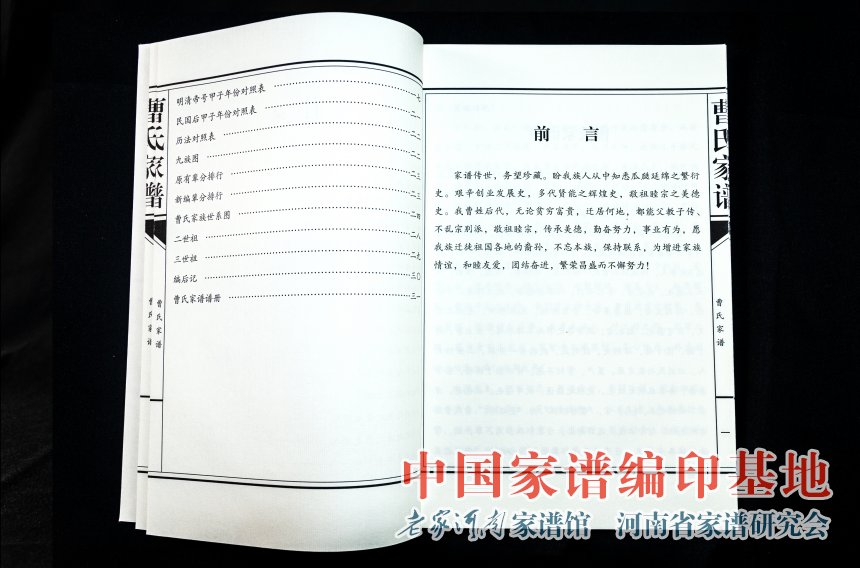 明清帝号甲子年份对照表
民国后甲子年份对照表 二一
历法对照表 二二
九族图 二二
原有辈分排行 二三
新编辈分排行 二三
曹氏家族世系图 二四
二世祖 二八
三世祖 二九
编后记 三〇
曹氏家谱谱册 三一
曹氏家谱
曹氏家谱
曹氏家谱
前言
家谱传世，务望珍藏。盼我族人从中知悉瓜瓞延绵之繁衍
史。艰辛创业发展史，多代贤能之辉煌史，敬祖睦宗之美德
史。我曹姓后代，无论贫穷富贵，迁居何地，都能父教子传、
不乱宗别派，敬祖睦宗，传承美德，勤奋努力，事业有为，愿
我族迁徙祖国各地的裔孙，不忘本族，保持联系，为增进家族
情谊，和睦友爱，团结奋进，繁荣昌盛而不懈努力！
曹氏家谱
曹氏家谱
一
中国家谱编印基地
老家河南家谱馆 河南省家谱研究会